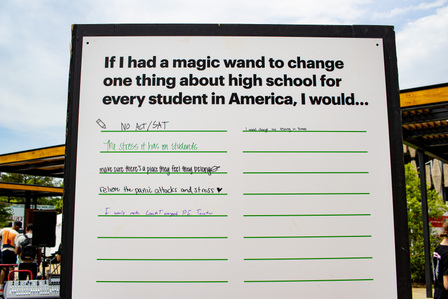 If I had a magic wand to change
one thing about high school for
every student in America, I would...
NO ACT/SAT
The stress it has on students
make sure there's a place they feel they belong
relieve the panic attacks and stress ♥
I would make